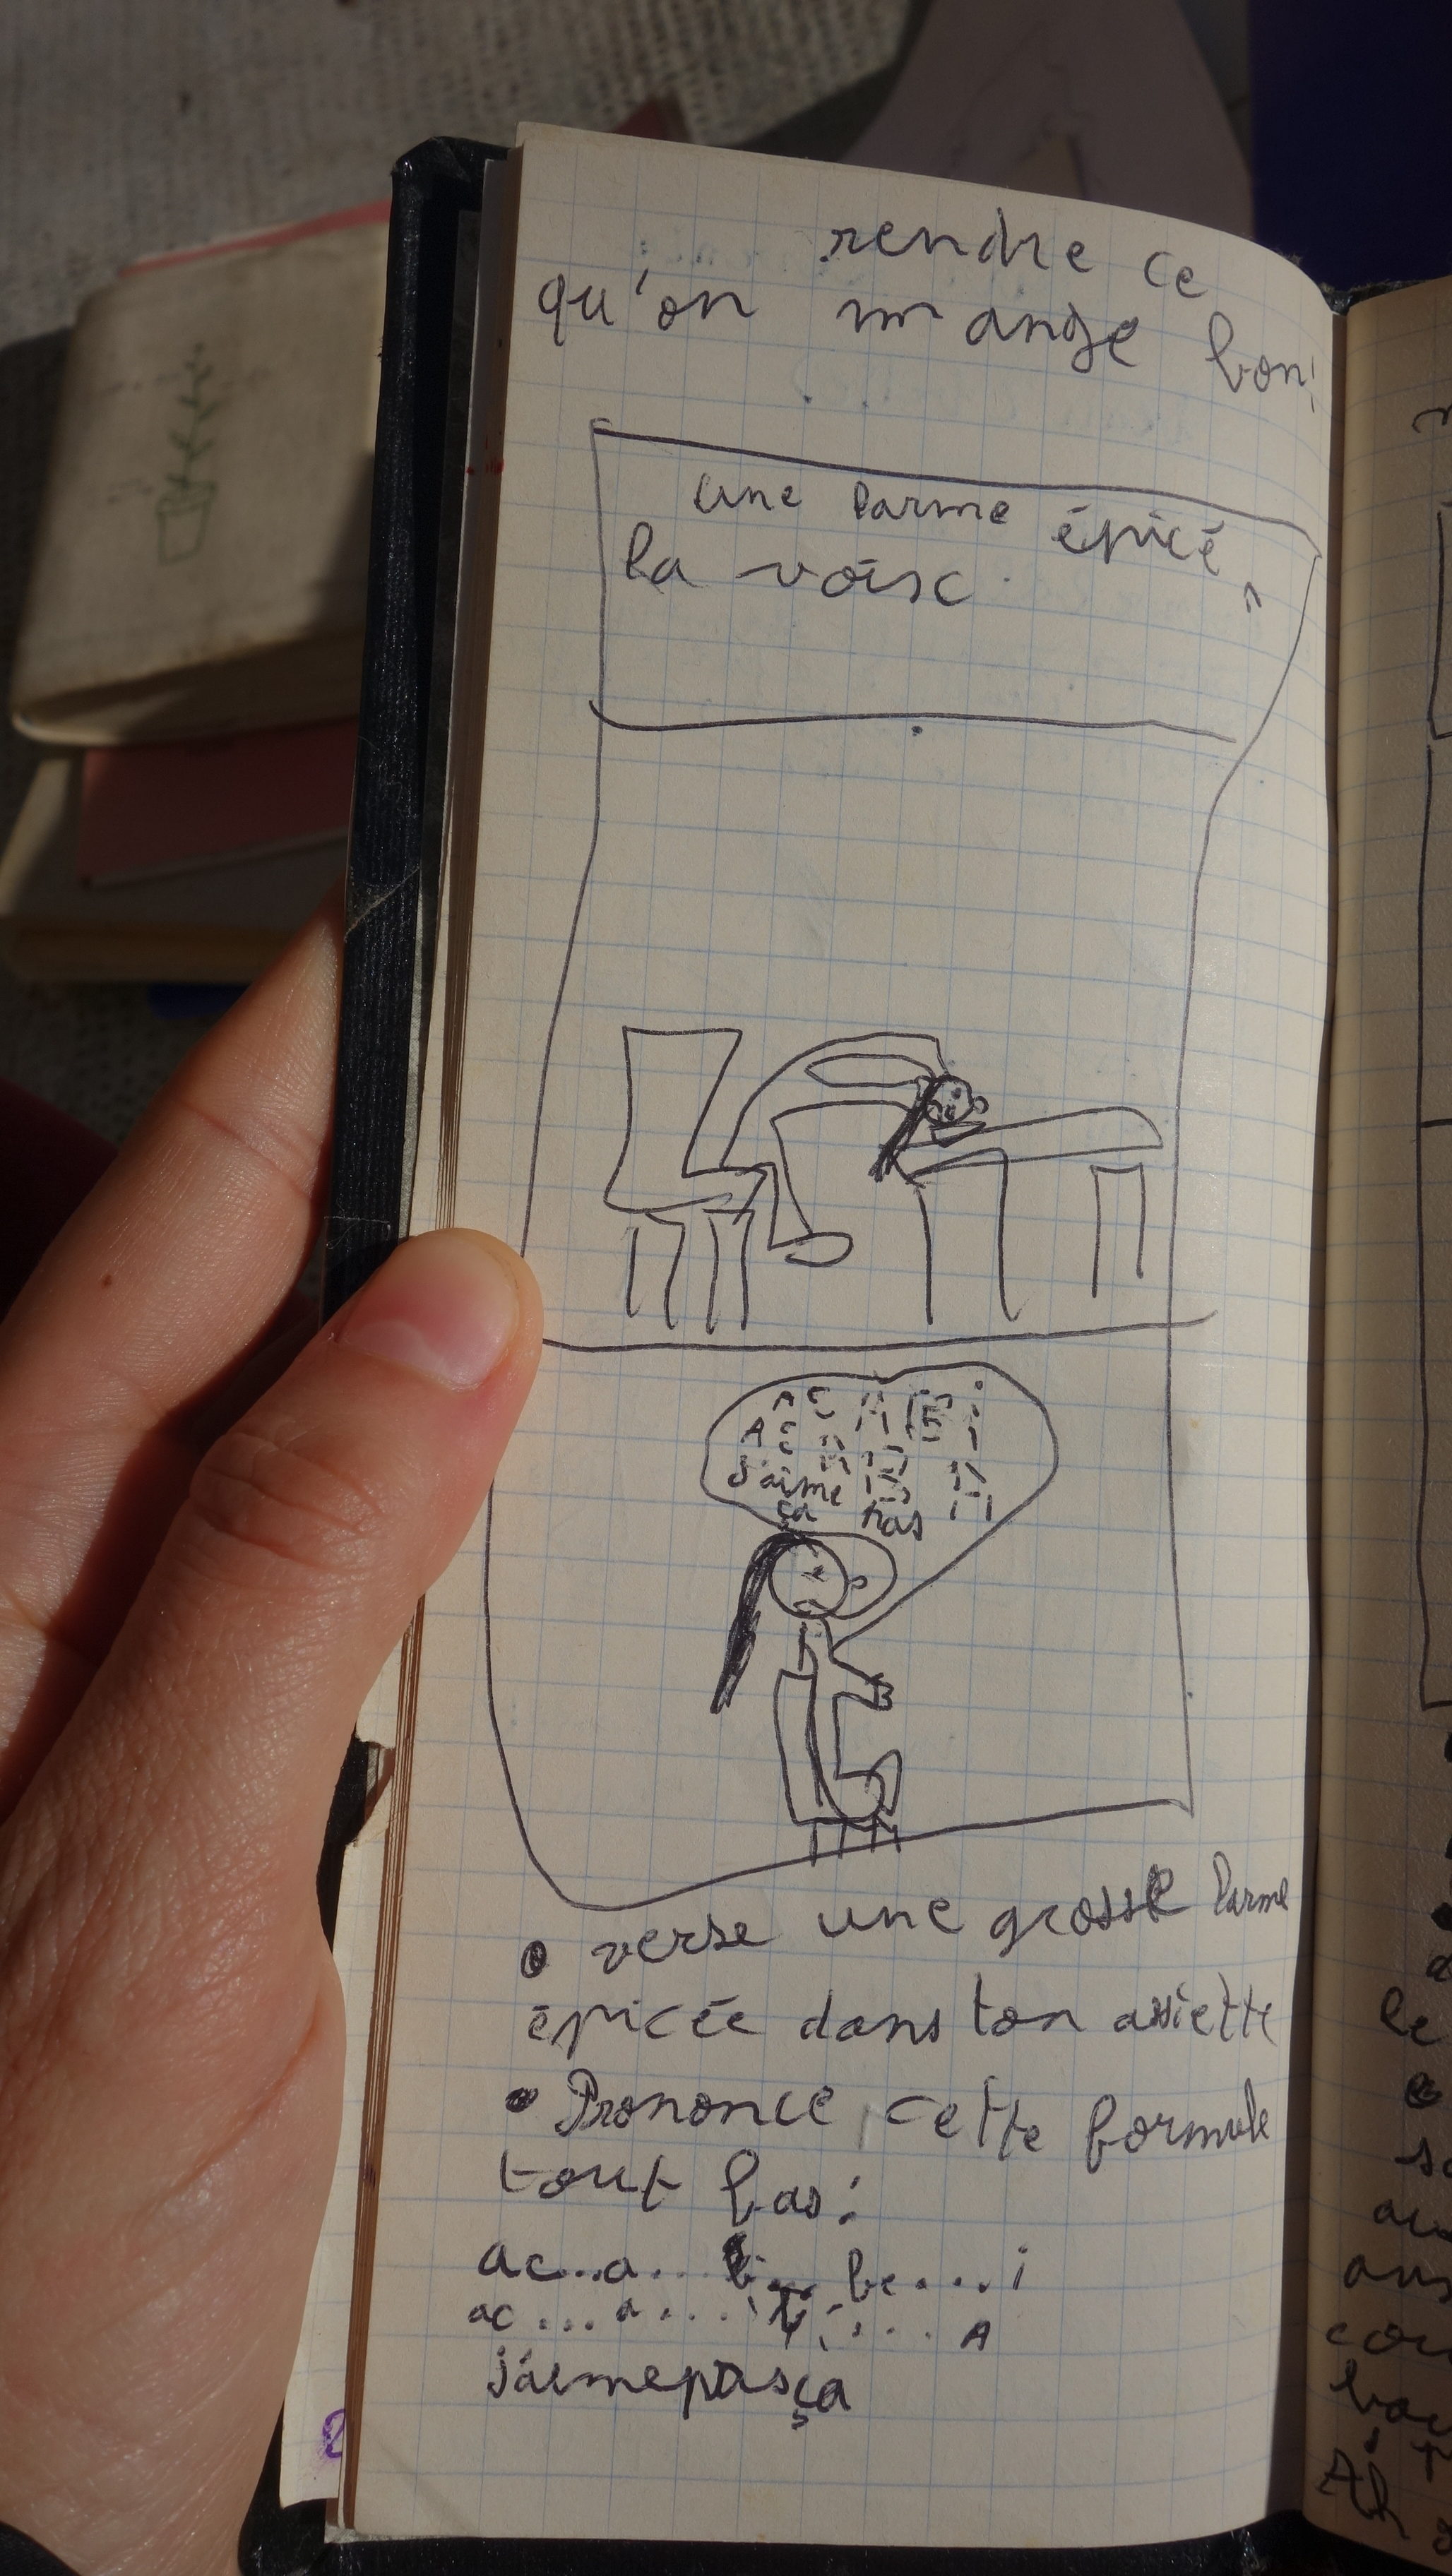 rendre ce
qu'on mange bon!
une larme épicé
la voix.
AC A BE i
AC A B A
J'aime
ça pas
• verse une grosse larme
épicée dans ton assiette
• Prononce cette formule
tout bas:
ac...a... be....i
ac...a.... A
j'aimepasça